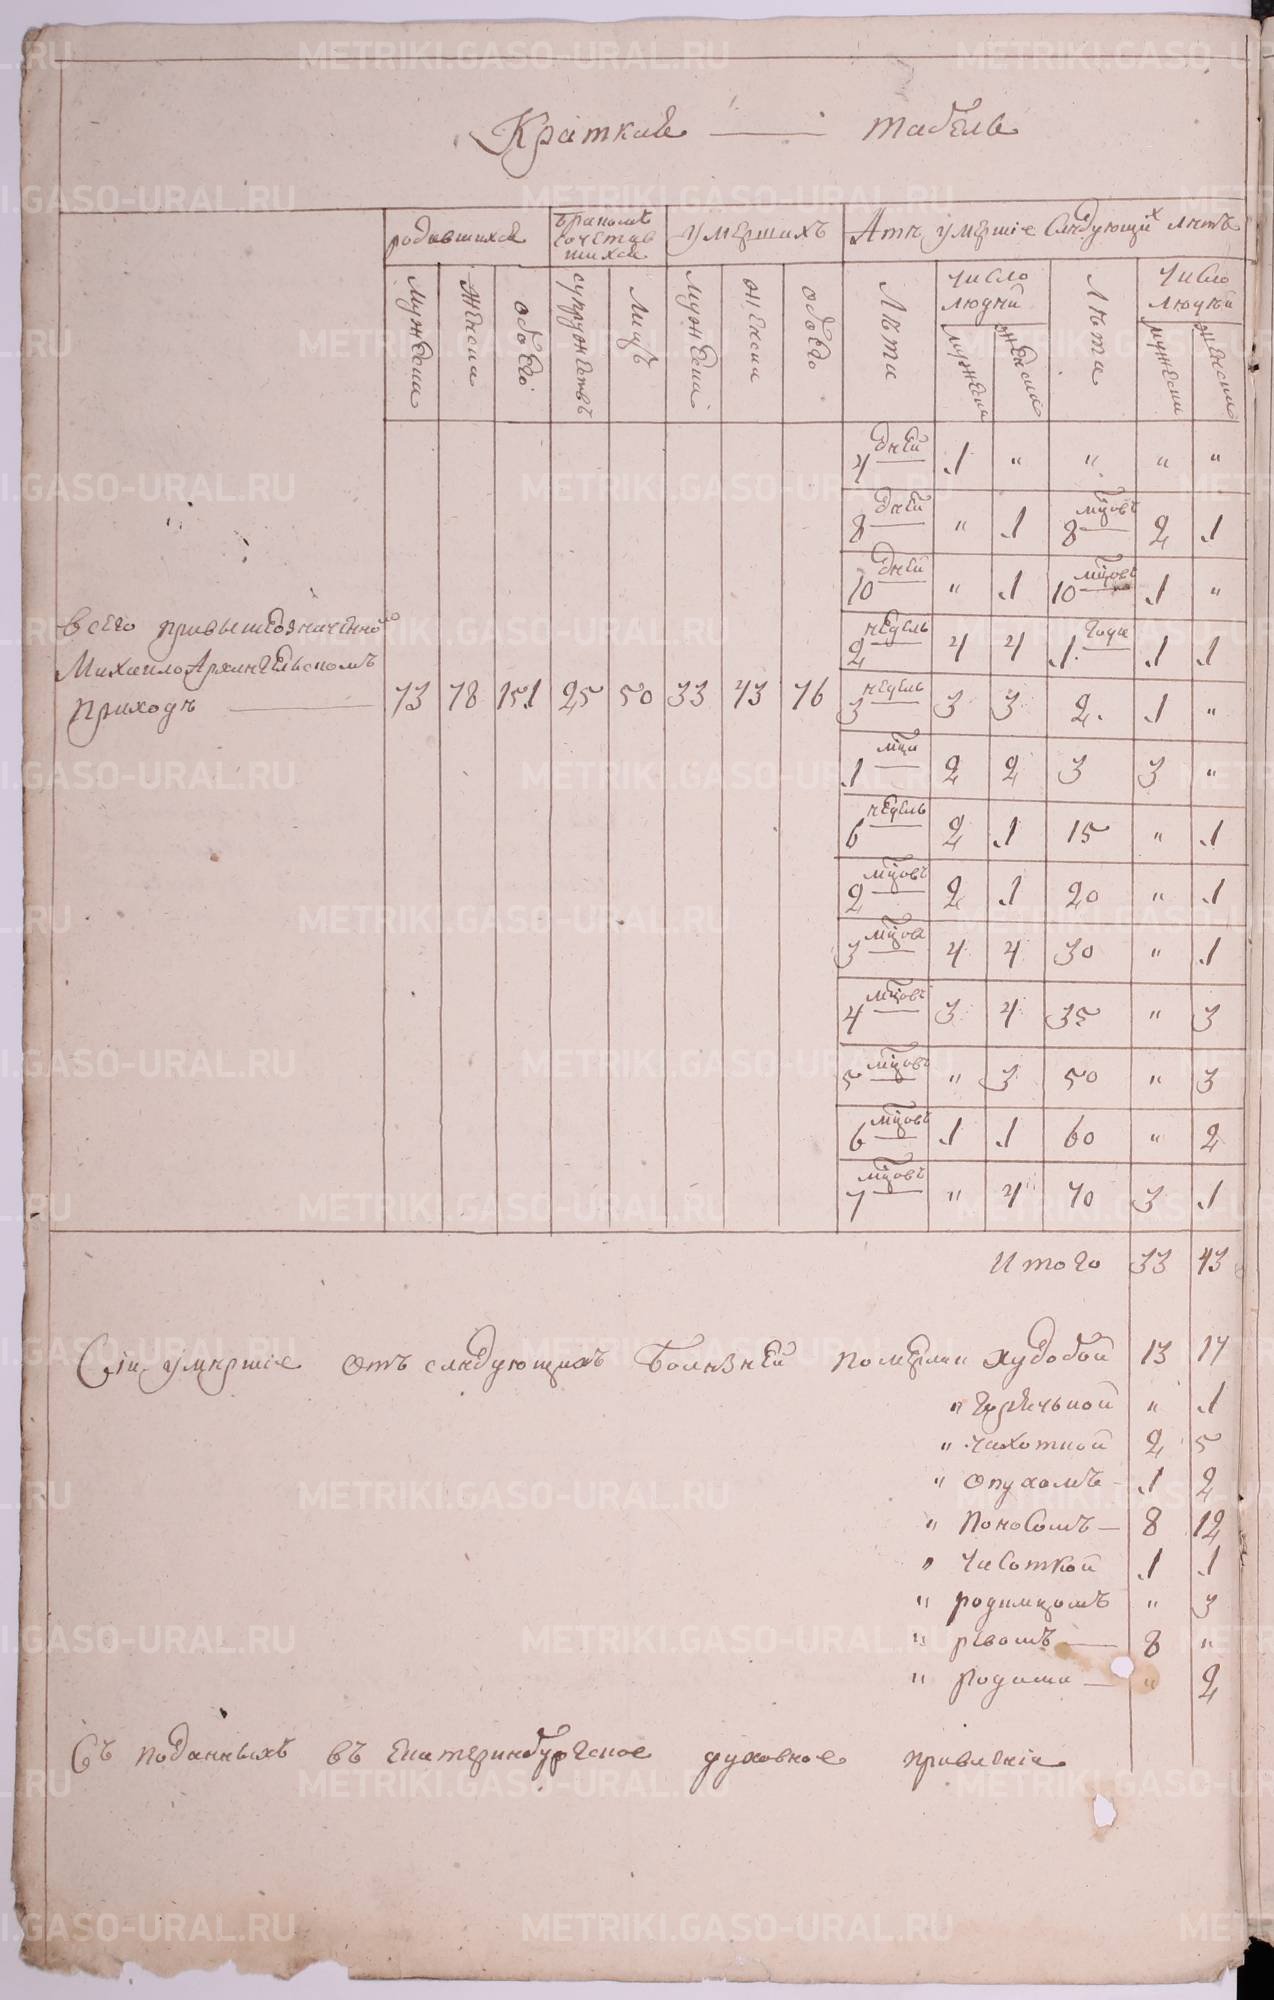 Краткая табель
родившихся | бракомъ сочетавшихся | умершихъ | А тѣ умершіе слѣдующихъ лѣтъ
мужеска | женска | обоего | супружествъ | лицъ | мужеска | женска | обоего | Лѣта | число людей | Лѣта | число людей
мужеска | женска | мужеска | женска
4 дней | 1 | " | " | " | "
8 дней | " | 1 | 8 мцовъ | 2 | 1
10 дней | " | 1 | 10 мцовъ | 1 | "
2 недель | 4 | 4 | 1 года | 1 | 1
Всего при вышеозначенной
Михаило Архангельскомъ
приходѣ — 73 | 78 | 151 | 25 | 50 | 33 | 43 | 76
3 недель | 3 | 3 | 2 | 1 | "
1 мца | 2 | 2 | 3 | 3 | "
6 недель | 2 | 1 | 15 | " | 1
2 мцовъ | 2 | 1 | 20 | " | 1
3 мцовъ | 4 | 4 | 30 | " | 1
4 мцовъ | 3 | 4 | 35 | " | 3
5 мцовъ | " | 3 | 50 | " | 3
6 мцовъ | 1 | 1 | 60 | " | 2
7 мцовъ | " | 4 | 70 | 3 | 1
Итого 33 43
Сіи умершіе отъ слѣдующихъ болѣзней худобой 13 17
" горячкой " 1
" чахоткой 2 5
" опухомъ 1 2
" поносомъ — 8 12
" чесоткой 1 1
" родимцомъ " 3
" рвомъ — 8 "
" родима — " 2
Съ поданныхъ въ Екатеринбургское духовное правленіе
METRIKI.GASO-URAL.RU